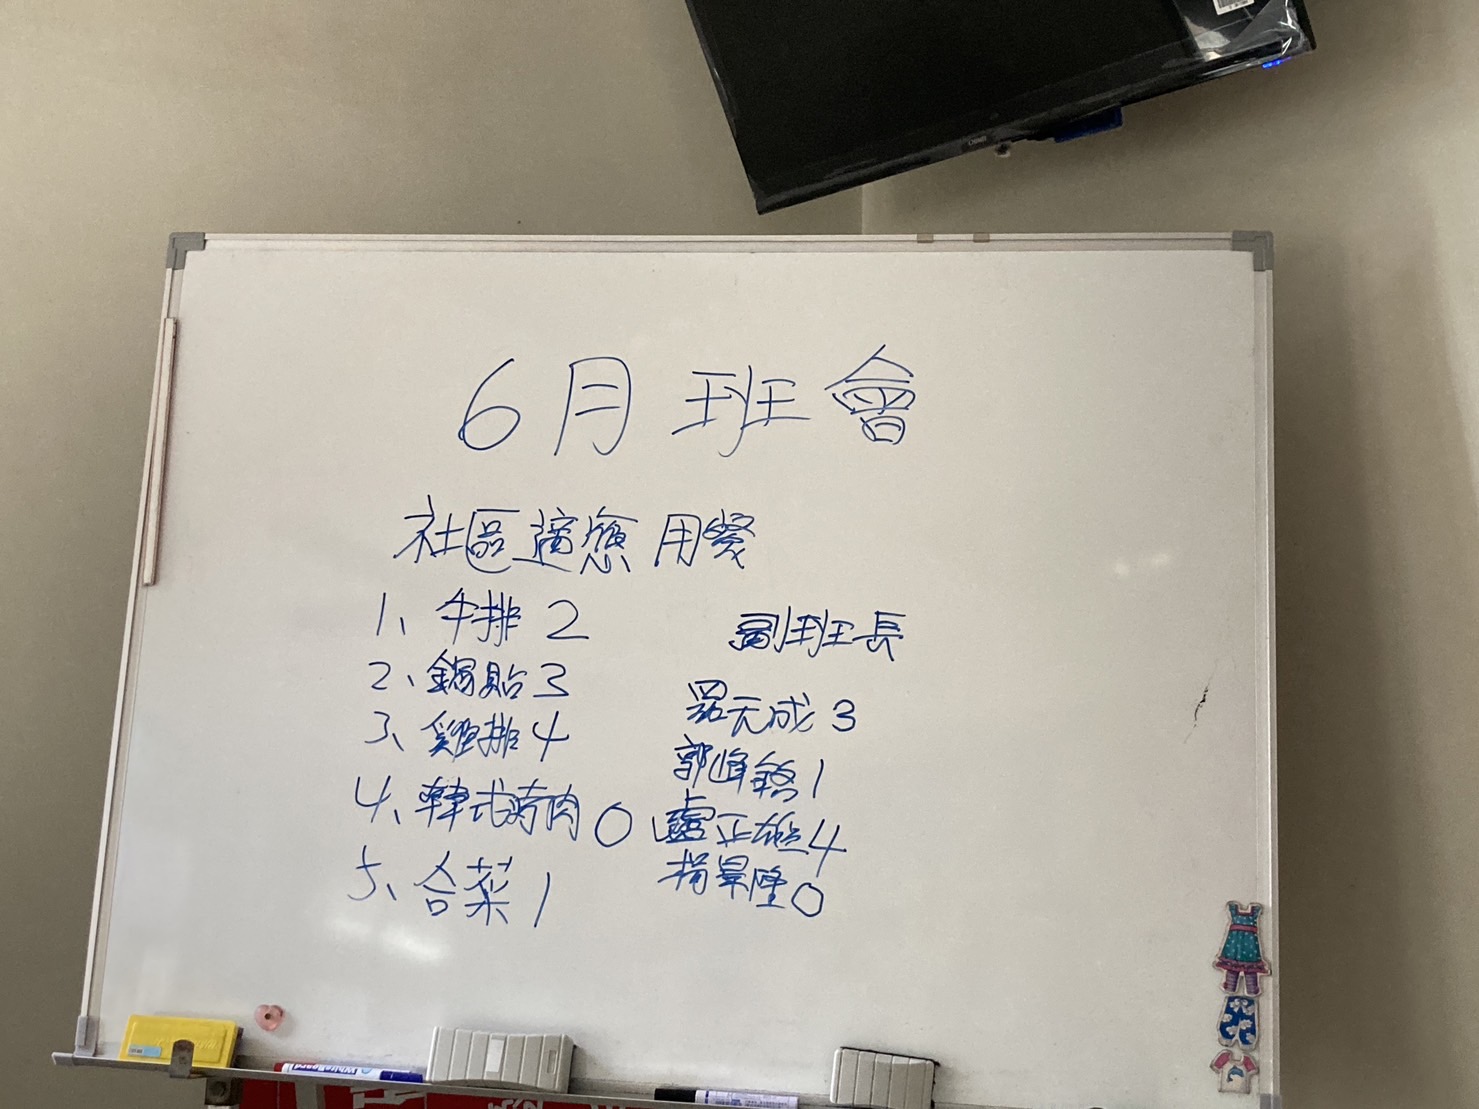 6月班會
社區適應 用餐
1、牛排 2
2、鍋貼 3
3、雞排 4
4、韓式烤肉 0
5、合菜 1
副班長
羅天成 3
郭峰銘 1
盧正雄 4
楊景隆 0
WhiteBoard